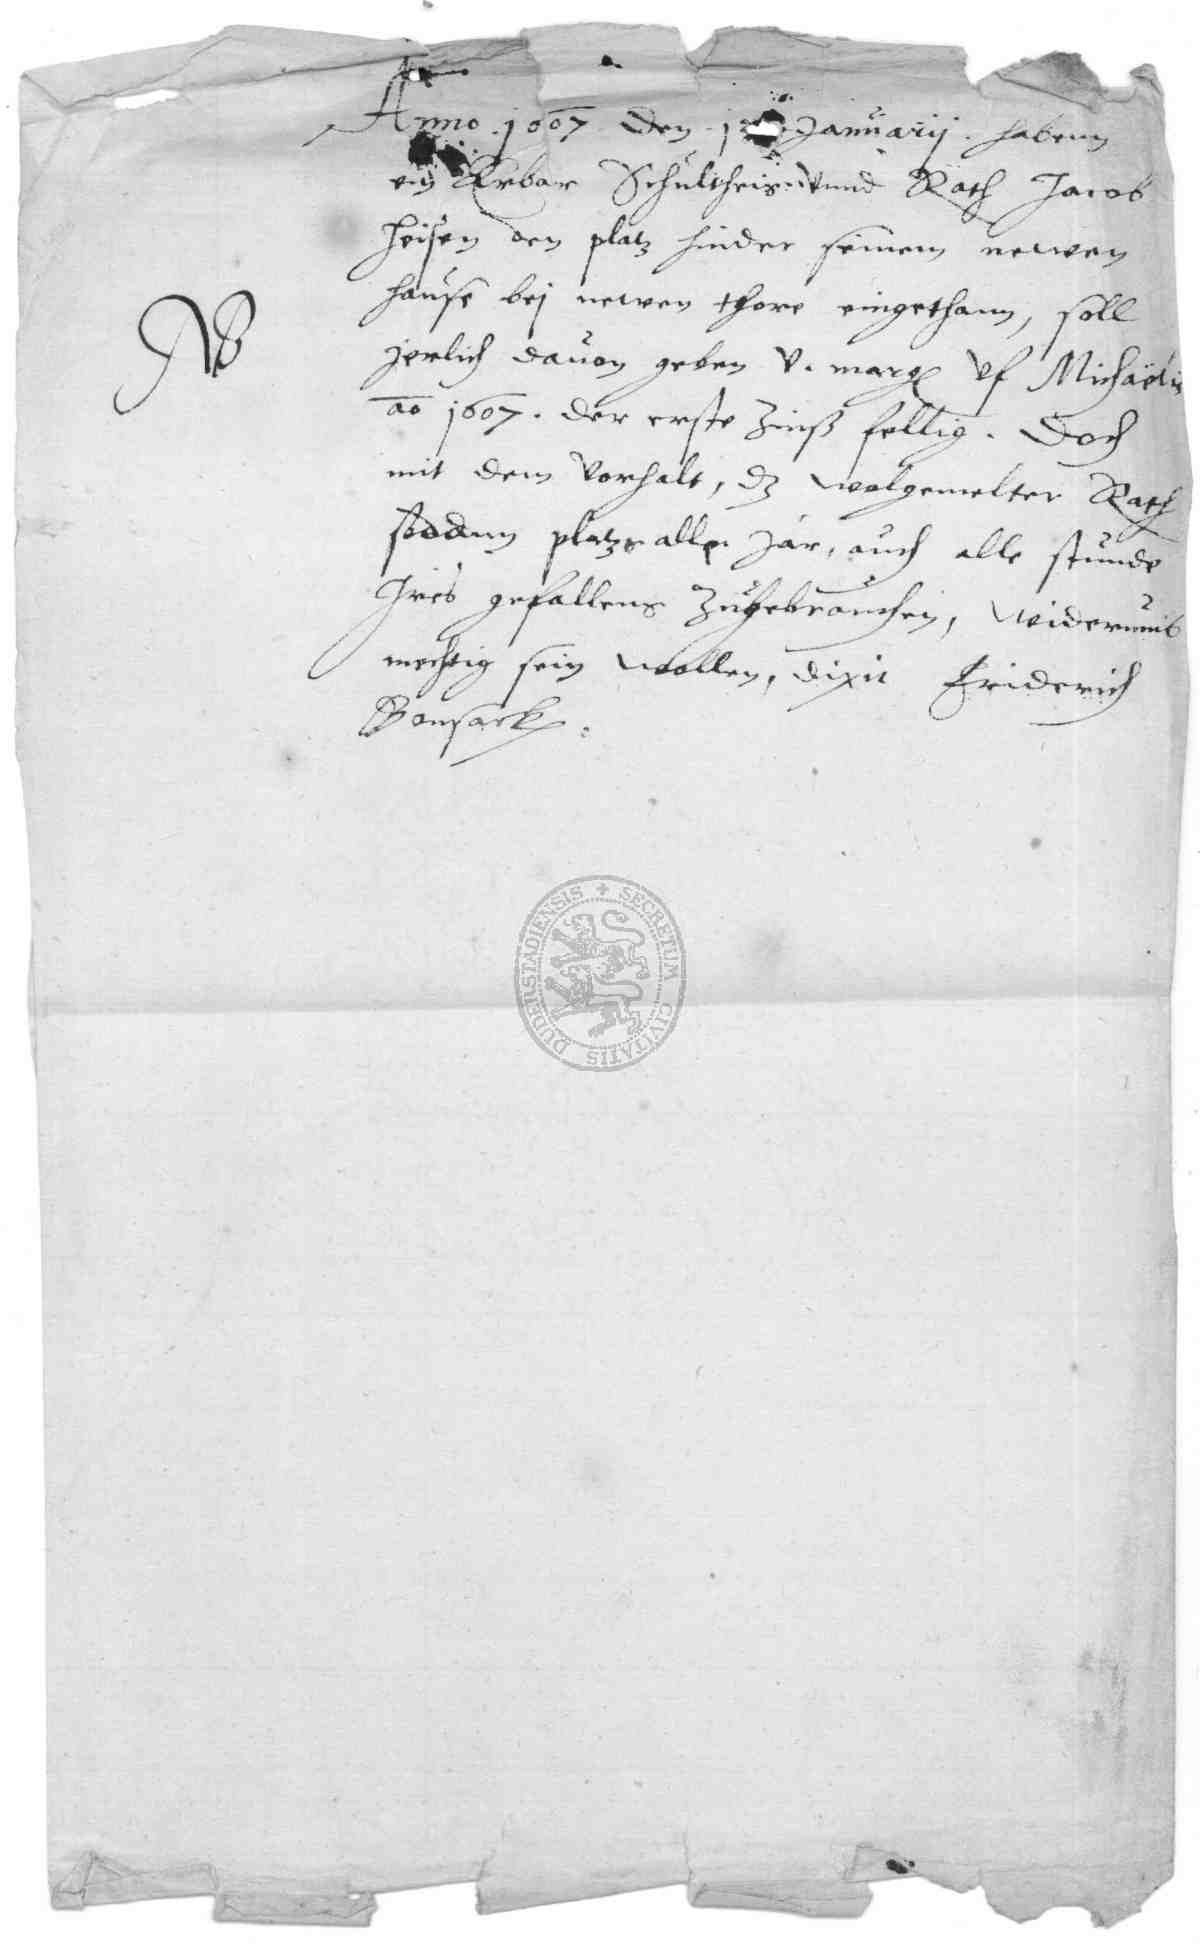 Anno 1607 den 1 Januarij. habenn
ein Erbar Schultheis vnnd Rath Jacob
Heisen den platz hinder seinem newen
hause bei newen thore eingethann, soll
jerlich dauon geben v. marg vf Michaelis
ao 1607. der erste Zinß fellig. Doch
NB
mit dem vorhalt, dz wolgemelter Rath
platzs alle Jar, auch alle stunde
Ires gefallens Zugebrauchen, widerumb
mechtig sein wollen, dixit Friderich
Bonsack.
SECRETUM CIVITATIS DUDERSTADIENSIS